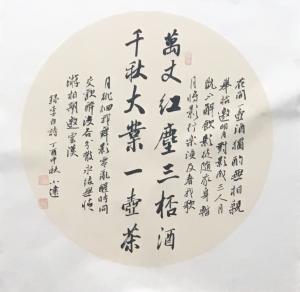 花間一壺酒獨酌無相親
舉杯邀明月對影成三人月
既不解飲影徒隨我身暫
月將影行樂須及春我歌
萬丈紅塵三杯酒
千秋大業一壺茶
月徘徊我舞影零亂醒時同
交歡醉後各分散永結無情
遊相期邈雲漢
錄李白詩 丁酉中秋 小